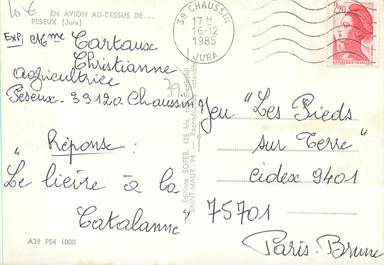 10 €
EN AVION AU-DESSUS DE...
PESEUX (Jura)
39 CHAUSSIN
17 H
16-12
1985
JURA
2,20
Exp: Mme Cartaux
Christianne
agricultrice
Peseux. 39120. Chaussin
Réponse:
"Le lièvre à la
Catalanne"
A39 PS4 1000
Editions SOFER, 125 bis,
SAINT-MAUR - 94
Jeu "Les Pieds
sur Terre"
cidex 9401
75701
Paris-Brune